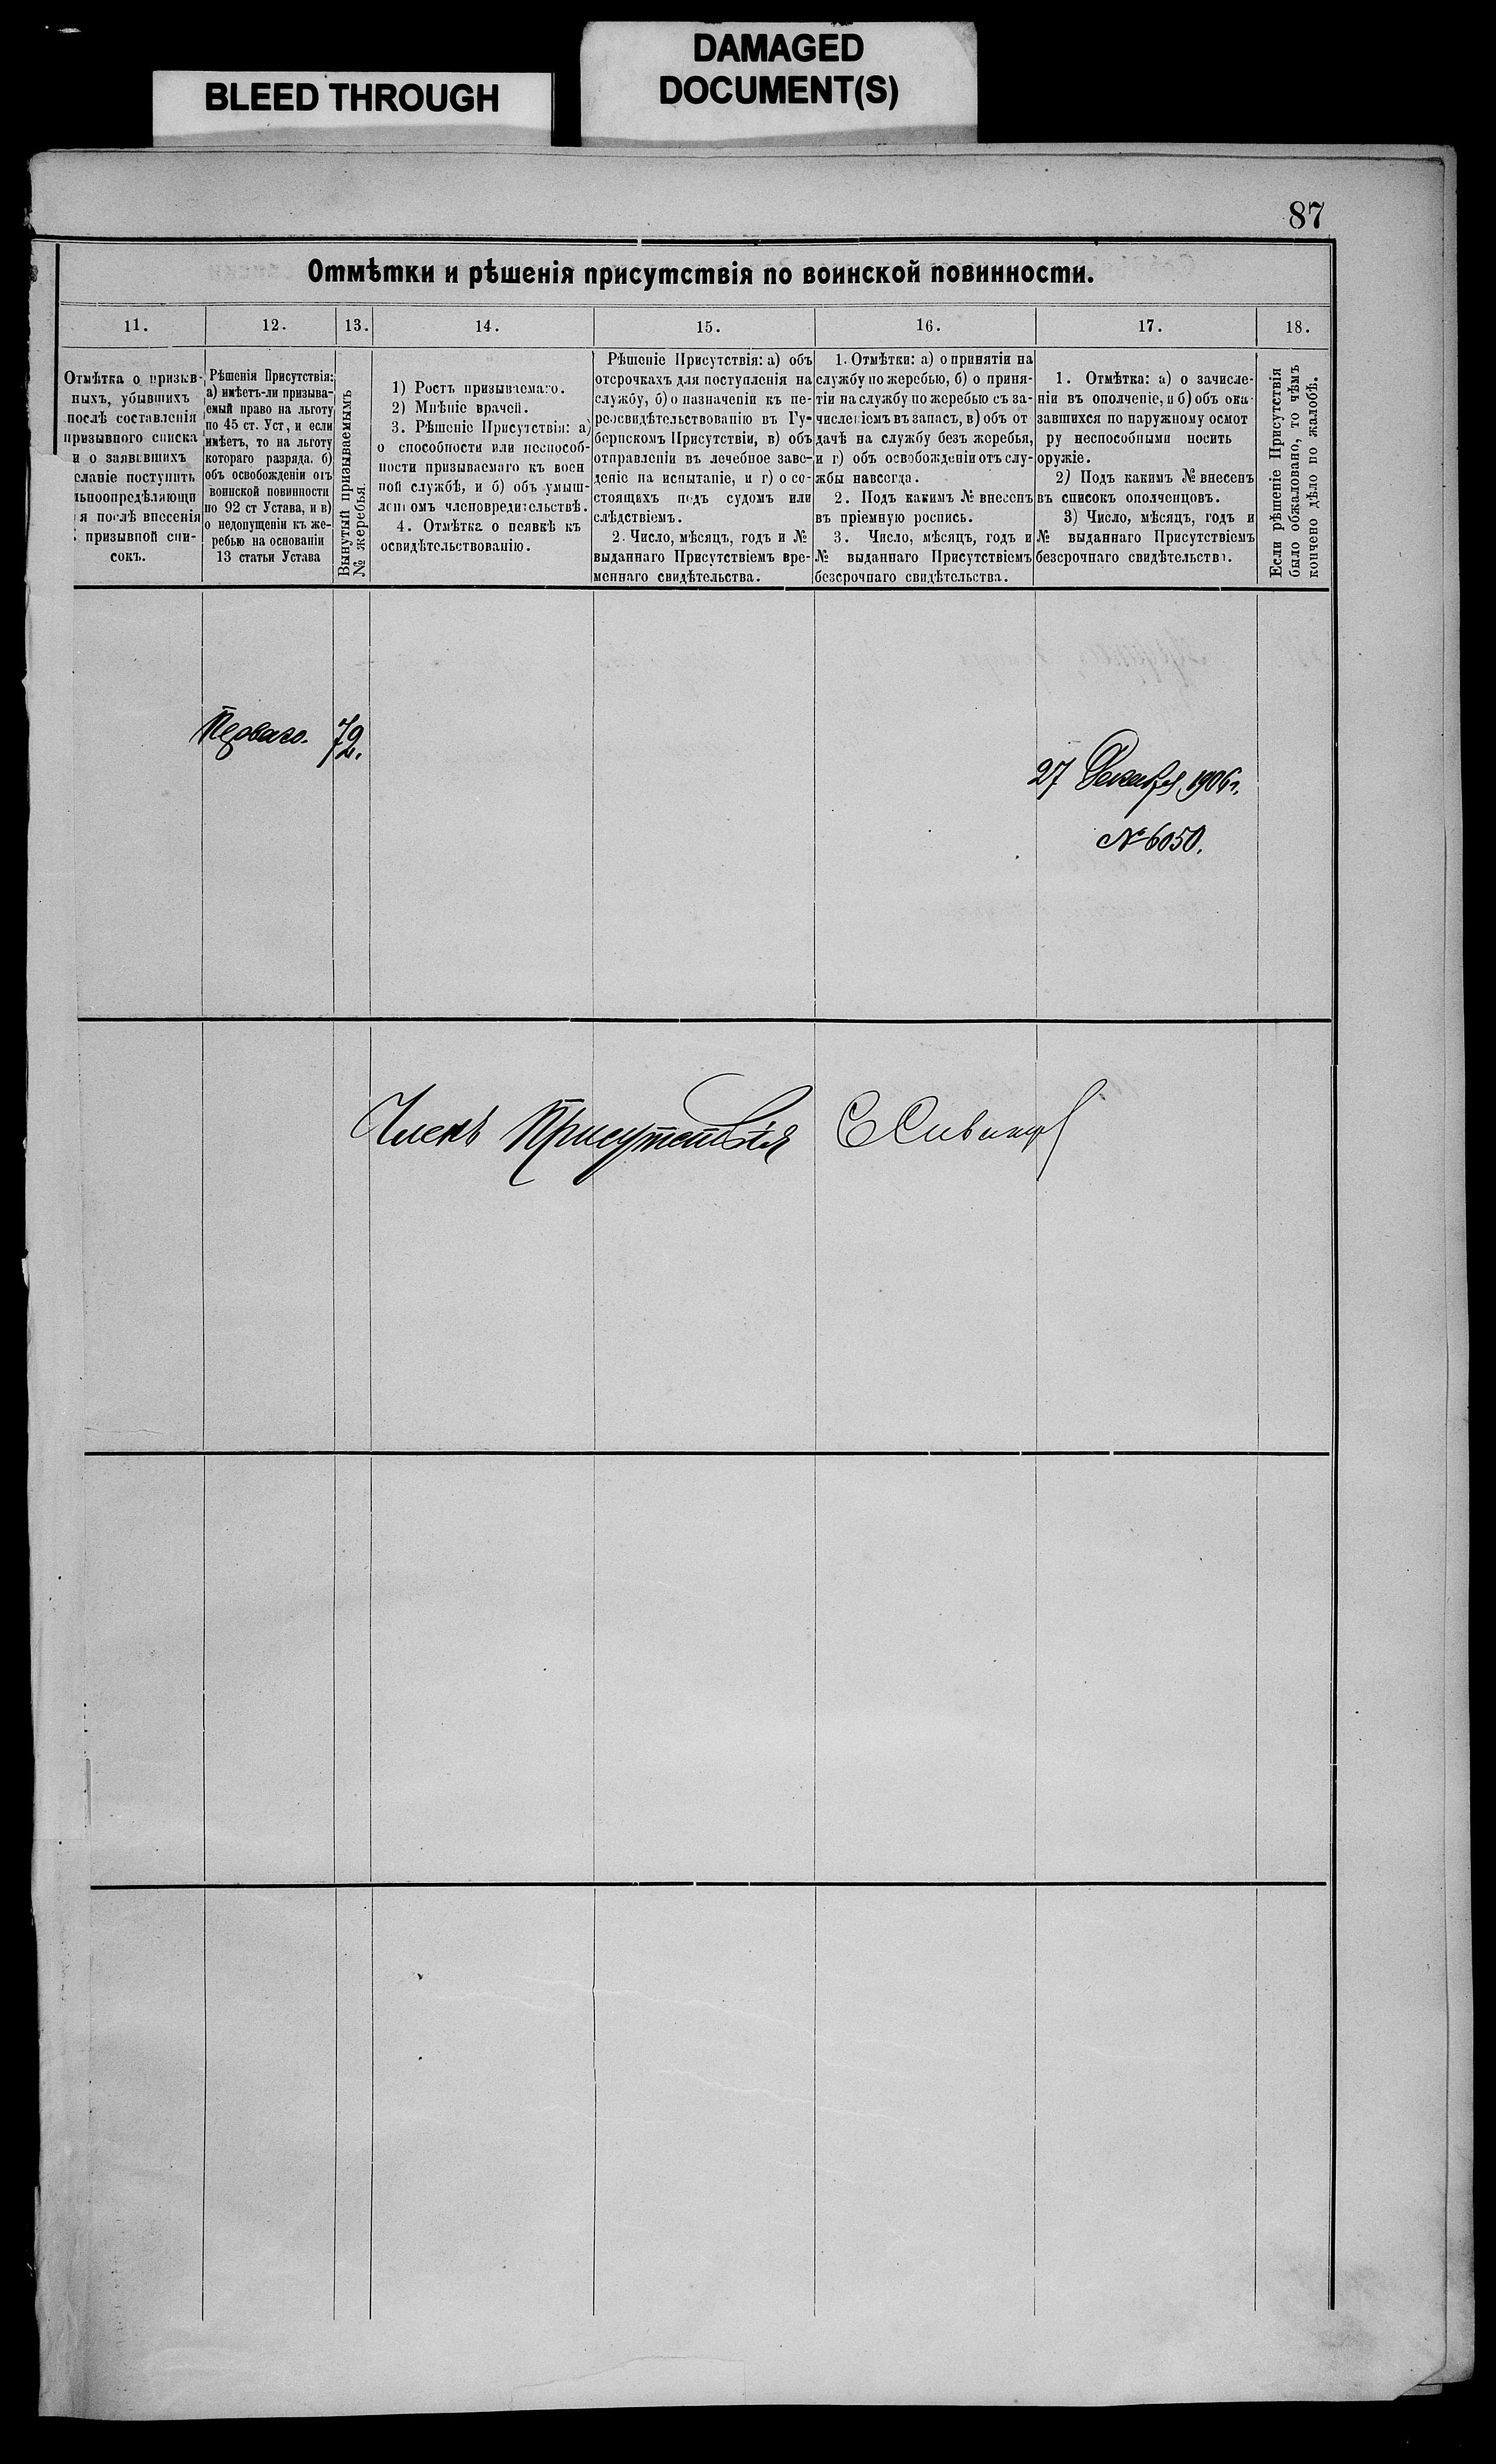 BLEED THROUGH
DAMAGED
DOCUMENT(S)
87
Отмѣтки и рѣшенія присутствія по воинской повинности.
11.
12.
13.
14.
15.
16.
17.
18.
Отмѣтка о призыв-
ныхъ, убывшихъ
послѣ составленія
призывного списка
и о заявившихъ
еланіе поступить
льноопредѣляющи
я послѣ внесенія
призывной спи-
сокъ.
Рѣшенія Присутствія:
а) имѣетъ-ли призыва-
емый право на льготу
по 45 ст. Уст, и если
имѣетъ, то на льготу
котораго разряда. б)
объ освобожденіи отъ
воинской повинности
по 92 ст Устава, и в)
о недопущеніи къ же-
ребью на основаніи
13 статьи Устава
Вынутый призываемымъ
№ жеребья.
1) Ростъ призываемаго.
2) Мнѣніе врачей.
3. Рѣшеніе Присутствія: а)
о способности или неспособ-
ности призываемаго къ воен
ной службѣ, и б) объ умыш-
леномъ членовредительствѣ.
4. Отмѣтка о неявкѣ къ
освидѣтельствованію.
Рѣшеніе Присутствія: а) объ
отсрочкахъ для поступленія на
службу, б) о назначеніи къ пе-
реосвидѣтельствованію въ Гу-
бернскомъ Присутствіи, в) объ
отправленіи въ лечебное заве-
деніе на испытаніе, и г) о со-
стоящихъ подъ судомъ или
слѣдствіемъ.
2. Число, мѣсяцъ, годъ и №
выданнаго Присутствіемъ вре-
меннаго свидѣтельства.
1. Отмѣтки: а) о принятіи на
службу по жеребью, б) о приня-
тіи на службу по жеребью съ за-
численіемъ въ запасъ, в) объ от
дачѣ на службу безъ жеребья,
и г) объ освобожденіи отъ слу-
жбы навсегда.
2. Подъ какимъ № внесенъ
въ пріемную роспись.
3. Число, мѣсяцъ, годъ и
№ выданнаго Присутствіемъ
безсрочнаго свидѣтельства.
1. Отмѣтка: а) о зачисле-
ніи въ ополченіе, и б) объ ока-
завшихся по наружному осмот
ру неспособными носить
оружіе.
2) Подъ какимъ № внесенъ
въ списокъ ополченцовъ.
3) Число, мѣсяцъ, годъ и
№ выданнаго Присутствіемъ
безсрочнаго свидѣтельств.
Если рѣшеніе Присутствія
было обжаловано, то чѣмъ
кончено дѣло по жалобѣ.
Перваго.
72.
27 Декабря 1906 г.
№ 6050.
Членъ Присутствія